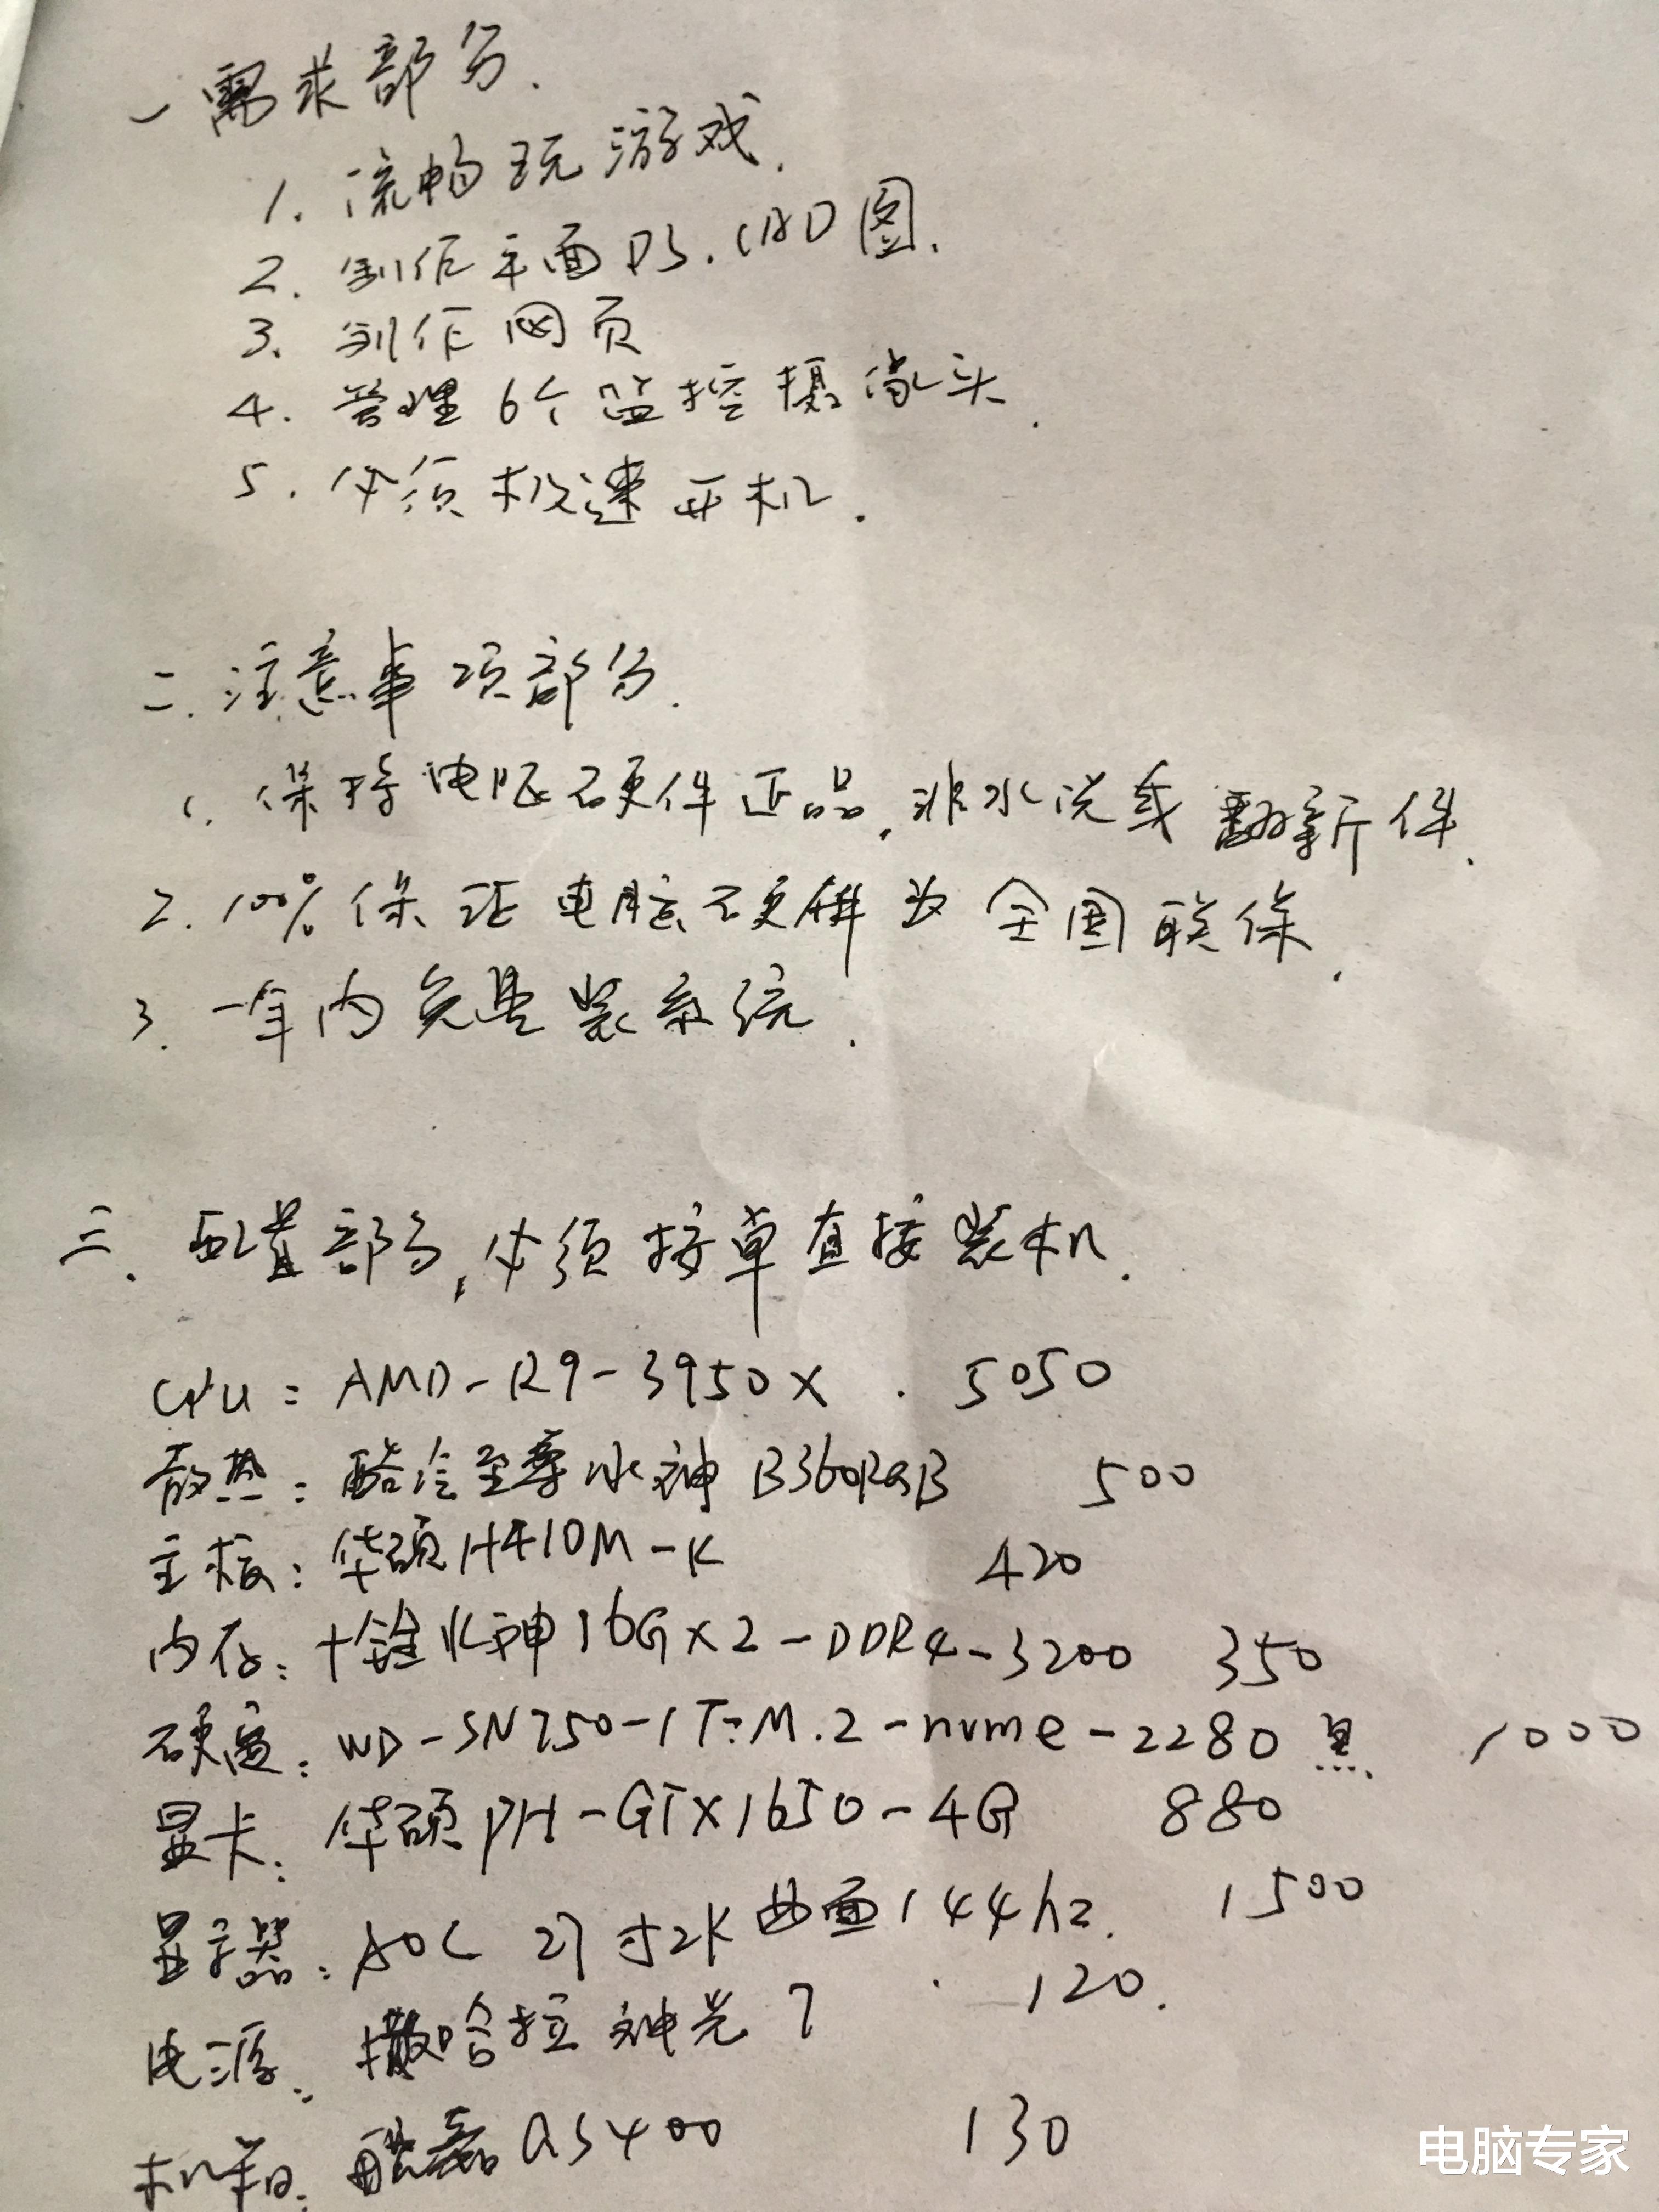 一需求部分.
1. 流畅玩游戏.
2. 制作平面PS.CAD图.
3. 制作网页
4. 管理6个监控摄像头.
5. 必须极速开机.
二.注意事项部分.
1. 保持电脑硬件正品,非水洗或翻新件.
2. 100%保证电脑硬件为全国联保.
3. 一年内免费装系统.
三.配置部分,必须按单直接装机.
CPU:AMD-R9-3950X. 5050
散热:酷冷至尊水神B360RGB 500
主板:华硕H410M-K 420
内存:十铨火神16GX2-DDR4-3200 350
硬盘:WD-SN750-1T:M.2-nvme-2280黑 1000
显卡:华硕PH-GTX1650-4G 880
显示器:AOC 27寸2K曲面144hz. 1500
电源:撒哈拉神光7 120.
机箱:酷磊QS400 130
电脑专家